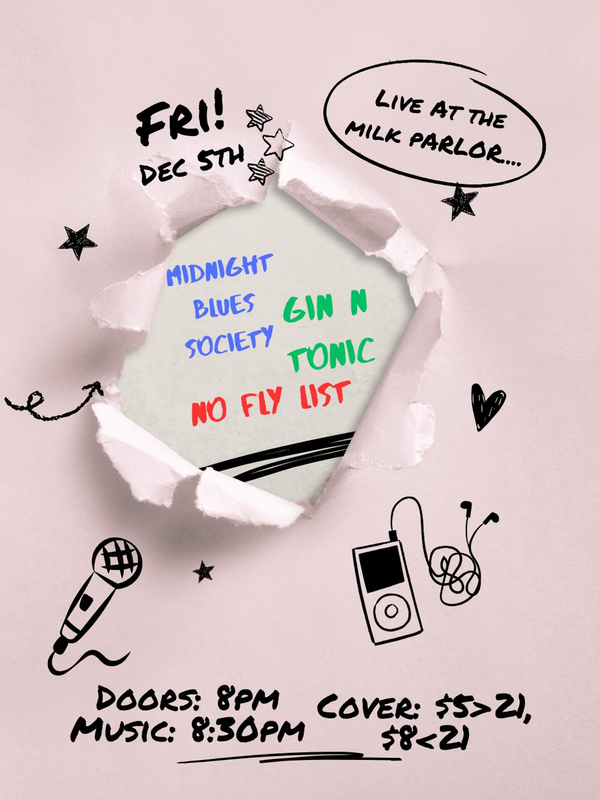 FRI!
DEC 5TH
LIVE AT THE
MILK PARLOR....
MIDNIGHT
BLUES
SOCIETY
GIN N
TONIC
NO FLY LIST
DOORS: 8PM
MUSIC: 8:30PM
COVER: $5>21,
$8<21